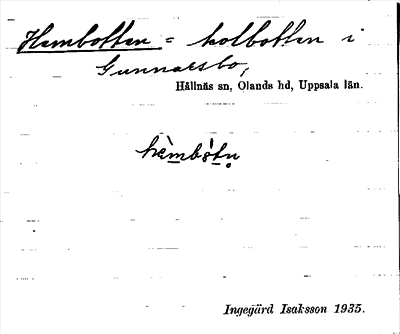 Hembotten = kolbotten i
Gunnarsbo,
Hållnäs sn, Olands hd, Uppsala län.
hèmbòtn̥
Ingegärd Isaksson 1935.